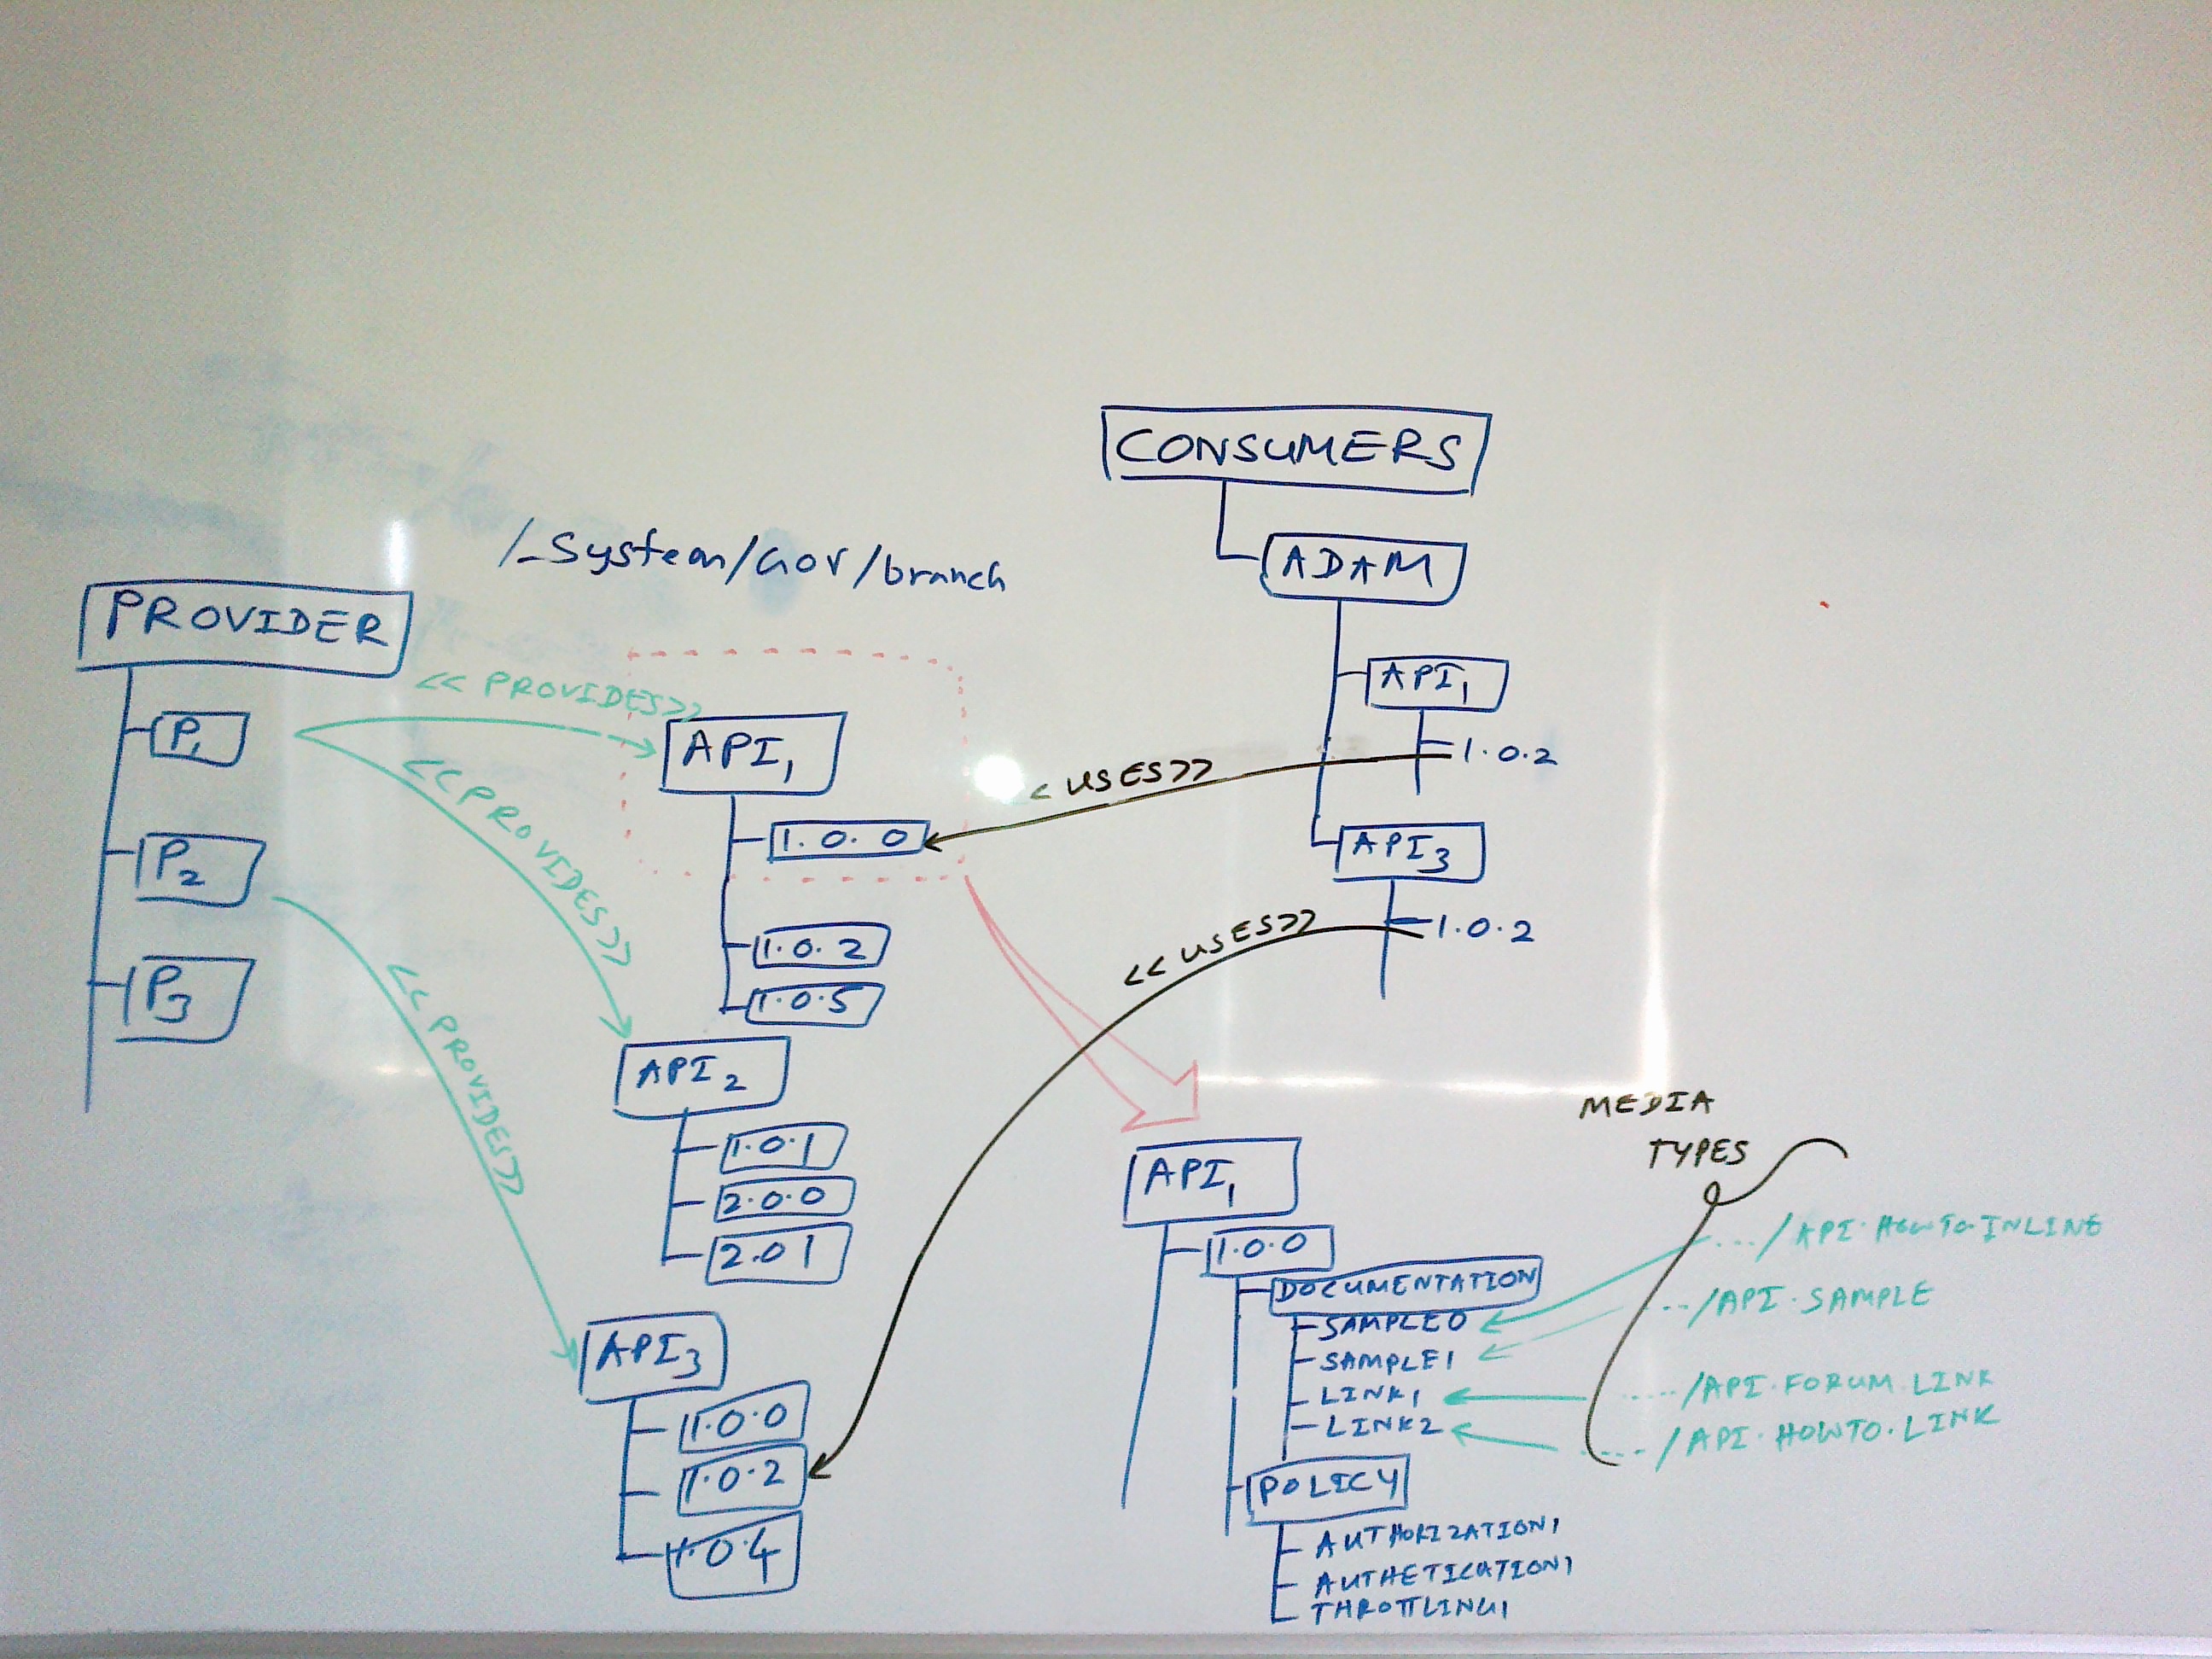 CONSUMERS
ADAM
API1
1.0.2
API3
1.0.2
/_System/Gov/branch
PROVIDER
P1
P2
P3
<< PROVIDES>>
<<PROVIDES>>
<<PROVIDES>>
API1
1.0.0
1.0.2
1.0.5
API2
1.0.1
2.0.0
2.01
API3
1.0.0
1.0.2
1.0.4
< USES>>
<< USES>>
API1
1.0.0
DOCUMENTATION
SAMPLE0
SAMPLE1
LINK1
LINK2
POLICY
AUTHORIZATION1
AUTHETICATION1
THROTTLING1
MEDIA
TYPES
.../API.HOWTO.INLINE
.../API.SAMPLE
...../API.FORUM.LINK
...../API.HOWTO.LINK